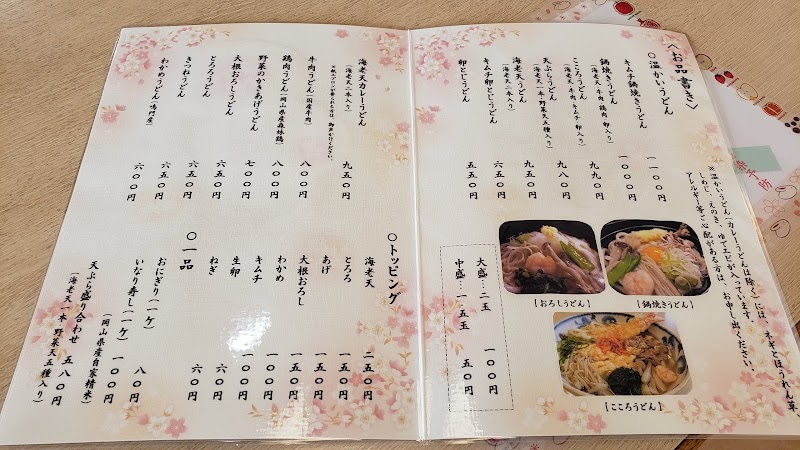 〈お品書き〉
○温かいうどん
キムチ鍋焼きうどん 一一〇〇円
鍋焼きうどん 一〇〇〇円
(海老天・牛肉 鶏肉 卵入り)
こころうどん 九九〇円
(海老天・牛肉 キムチ 卵入り)
天ぷらうどん 九八〇円
(海老天一本・野菜天五種入り)
海老天うどん 九五〇円
(海老天二本入り)
キムチ卵とじうどん 六五〇円
卵とじうどん 五五〇円
※温かいうどん(カレーうどんは除く)には、ねぎとほうれん草
しめじ、えのき、ゆでエビが入っています。
アレルギー等ご心配がある方は、お申し出ください。
大盛…二玉 一〇〇円
中盛…一五玉 五〇円
【おろしうどん】
【鍋焼きうどん】
【こころうどん】
海老天カレーうどん 九五〇円
(海老天二本入り)
※紙エプロンが要られる方は、御声かけください。
牛肉うどん(国産牛肉) 八〇〇円
鶏肉うどん(岡山県産森林鶏) 八〇〇円
野菜のかきあげうどん 七〇〇円
大根おろしうどん 六五〇円
とろろうどん 六五〇円
きつねうどん 六五〇円
わかめうどん(鳴門産) 六〇〇円
○トッピング
海老天 二五〇円
とろろ 一五〇円
あげ 一五〇円
大根おろし 一五〇円
わかめ 一〇〇円
キムチ 一〇〇円
生卵 六〇円
ねぎ 六〇円
○一品
おにぎり(一ケ) 八〇円
いなり寿し(一ケ) 一〇〇円
(岡山県産自家精米)
天ぷら盛り合わせ 五八〇円
(海老天一本 野菜天五種入り)